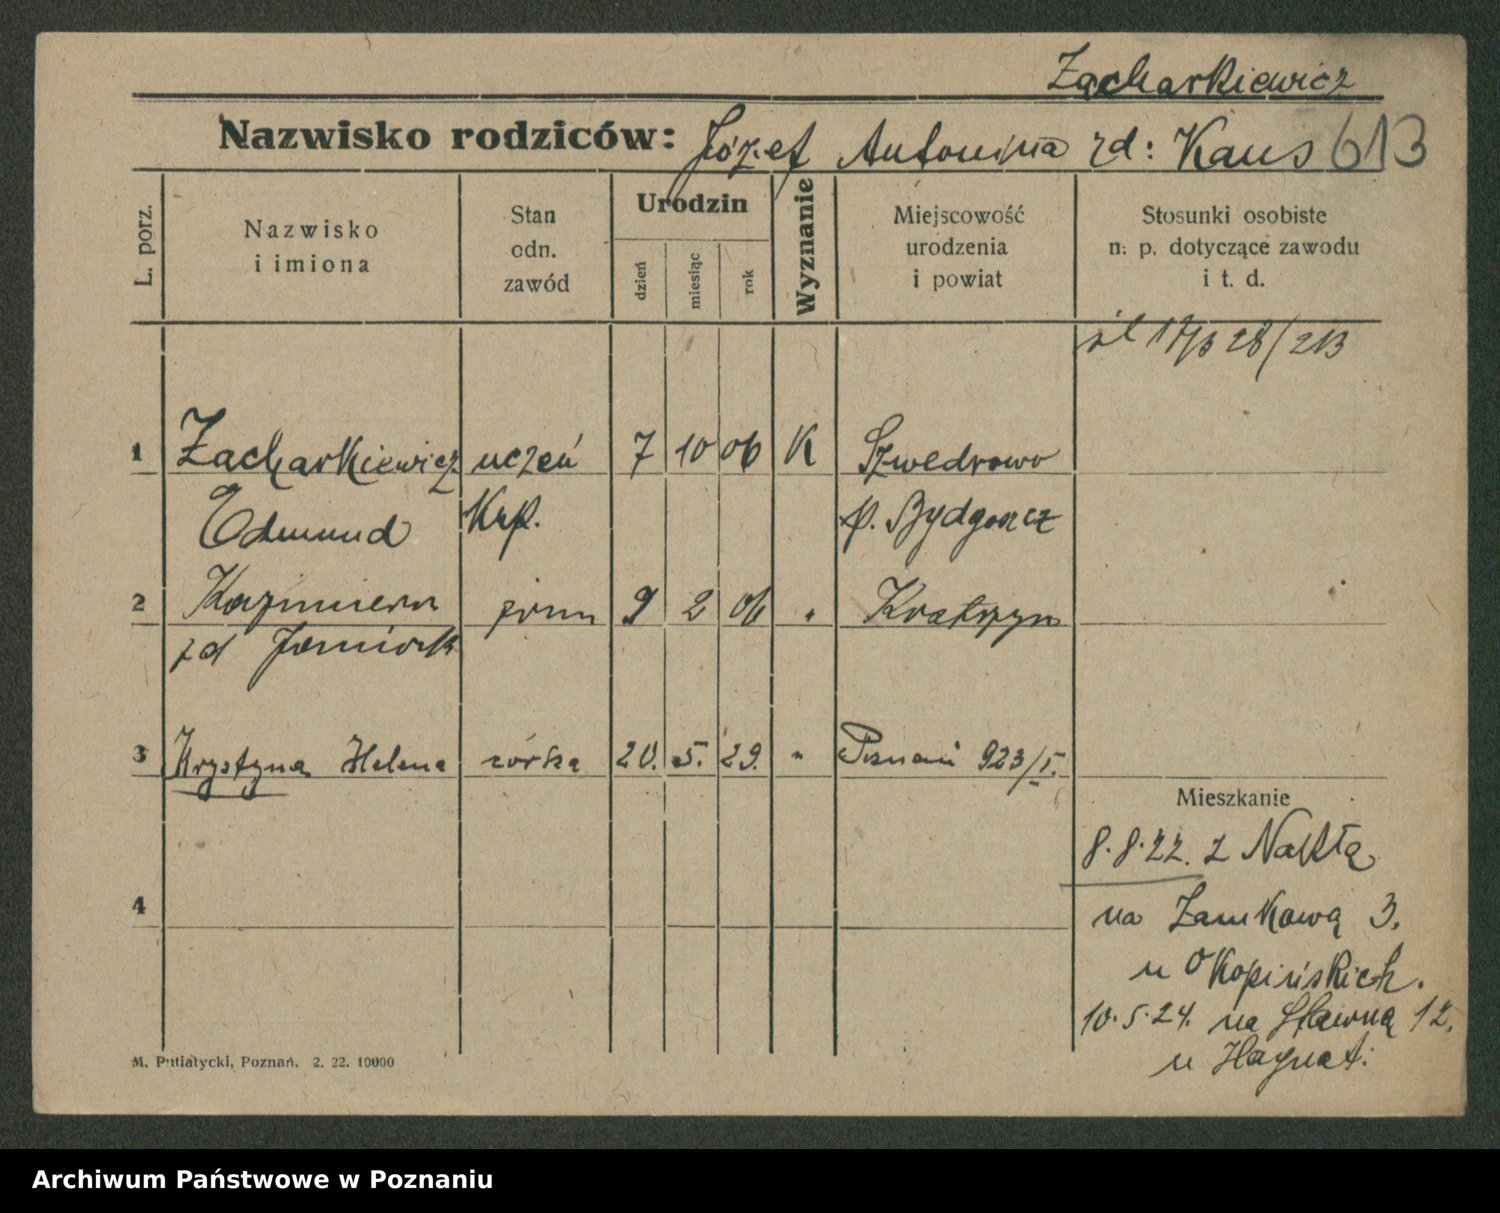 Zacharkiewicz
Nazwisko rodziców: Józef Antonina zd: Kaus 613
L. porz.
Nazwisko
i imiona
Stan
odn.
zawód
Urodzin
dzień
miesiąc
rok
Wyznanie
Miejscowość
urodzenia
i powiat
Stosunki osobiste
n. p. dotyczące zawodu
i t. d.
śl 28/213
1 Zacharkiewicz uczeń 7 10 06 K Szwedrowo
Edmund Kup. p. Bydgoszcz
2 Kazimiera żona 9 2 06 "
zd
3 Krystyna Helena córka 20. 5. 29. " Poznań 923/I.
Mieszkanie
8.8.22. z Nakła
4
na Zamkową 3.
u Okopińskich.
10.5.24. na Sławną 12.
u
M. Putiatycki, Poznań. 2. 22. 10000
Archiwum Państwowe w Poznaniu